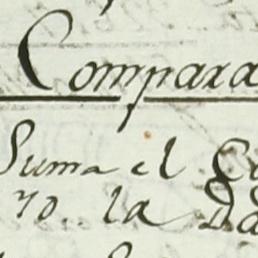 Compara
Suma el
70.. la